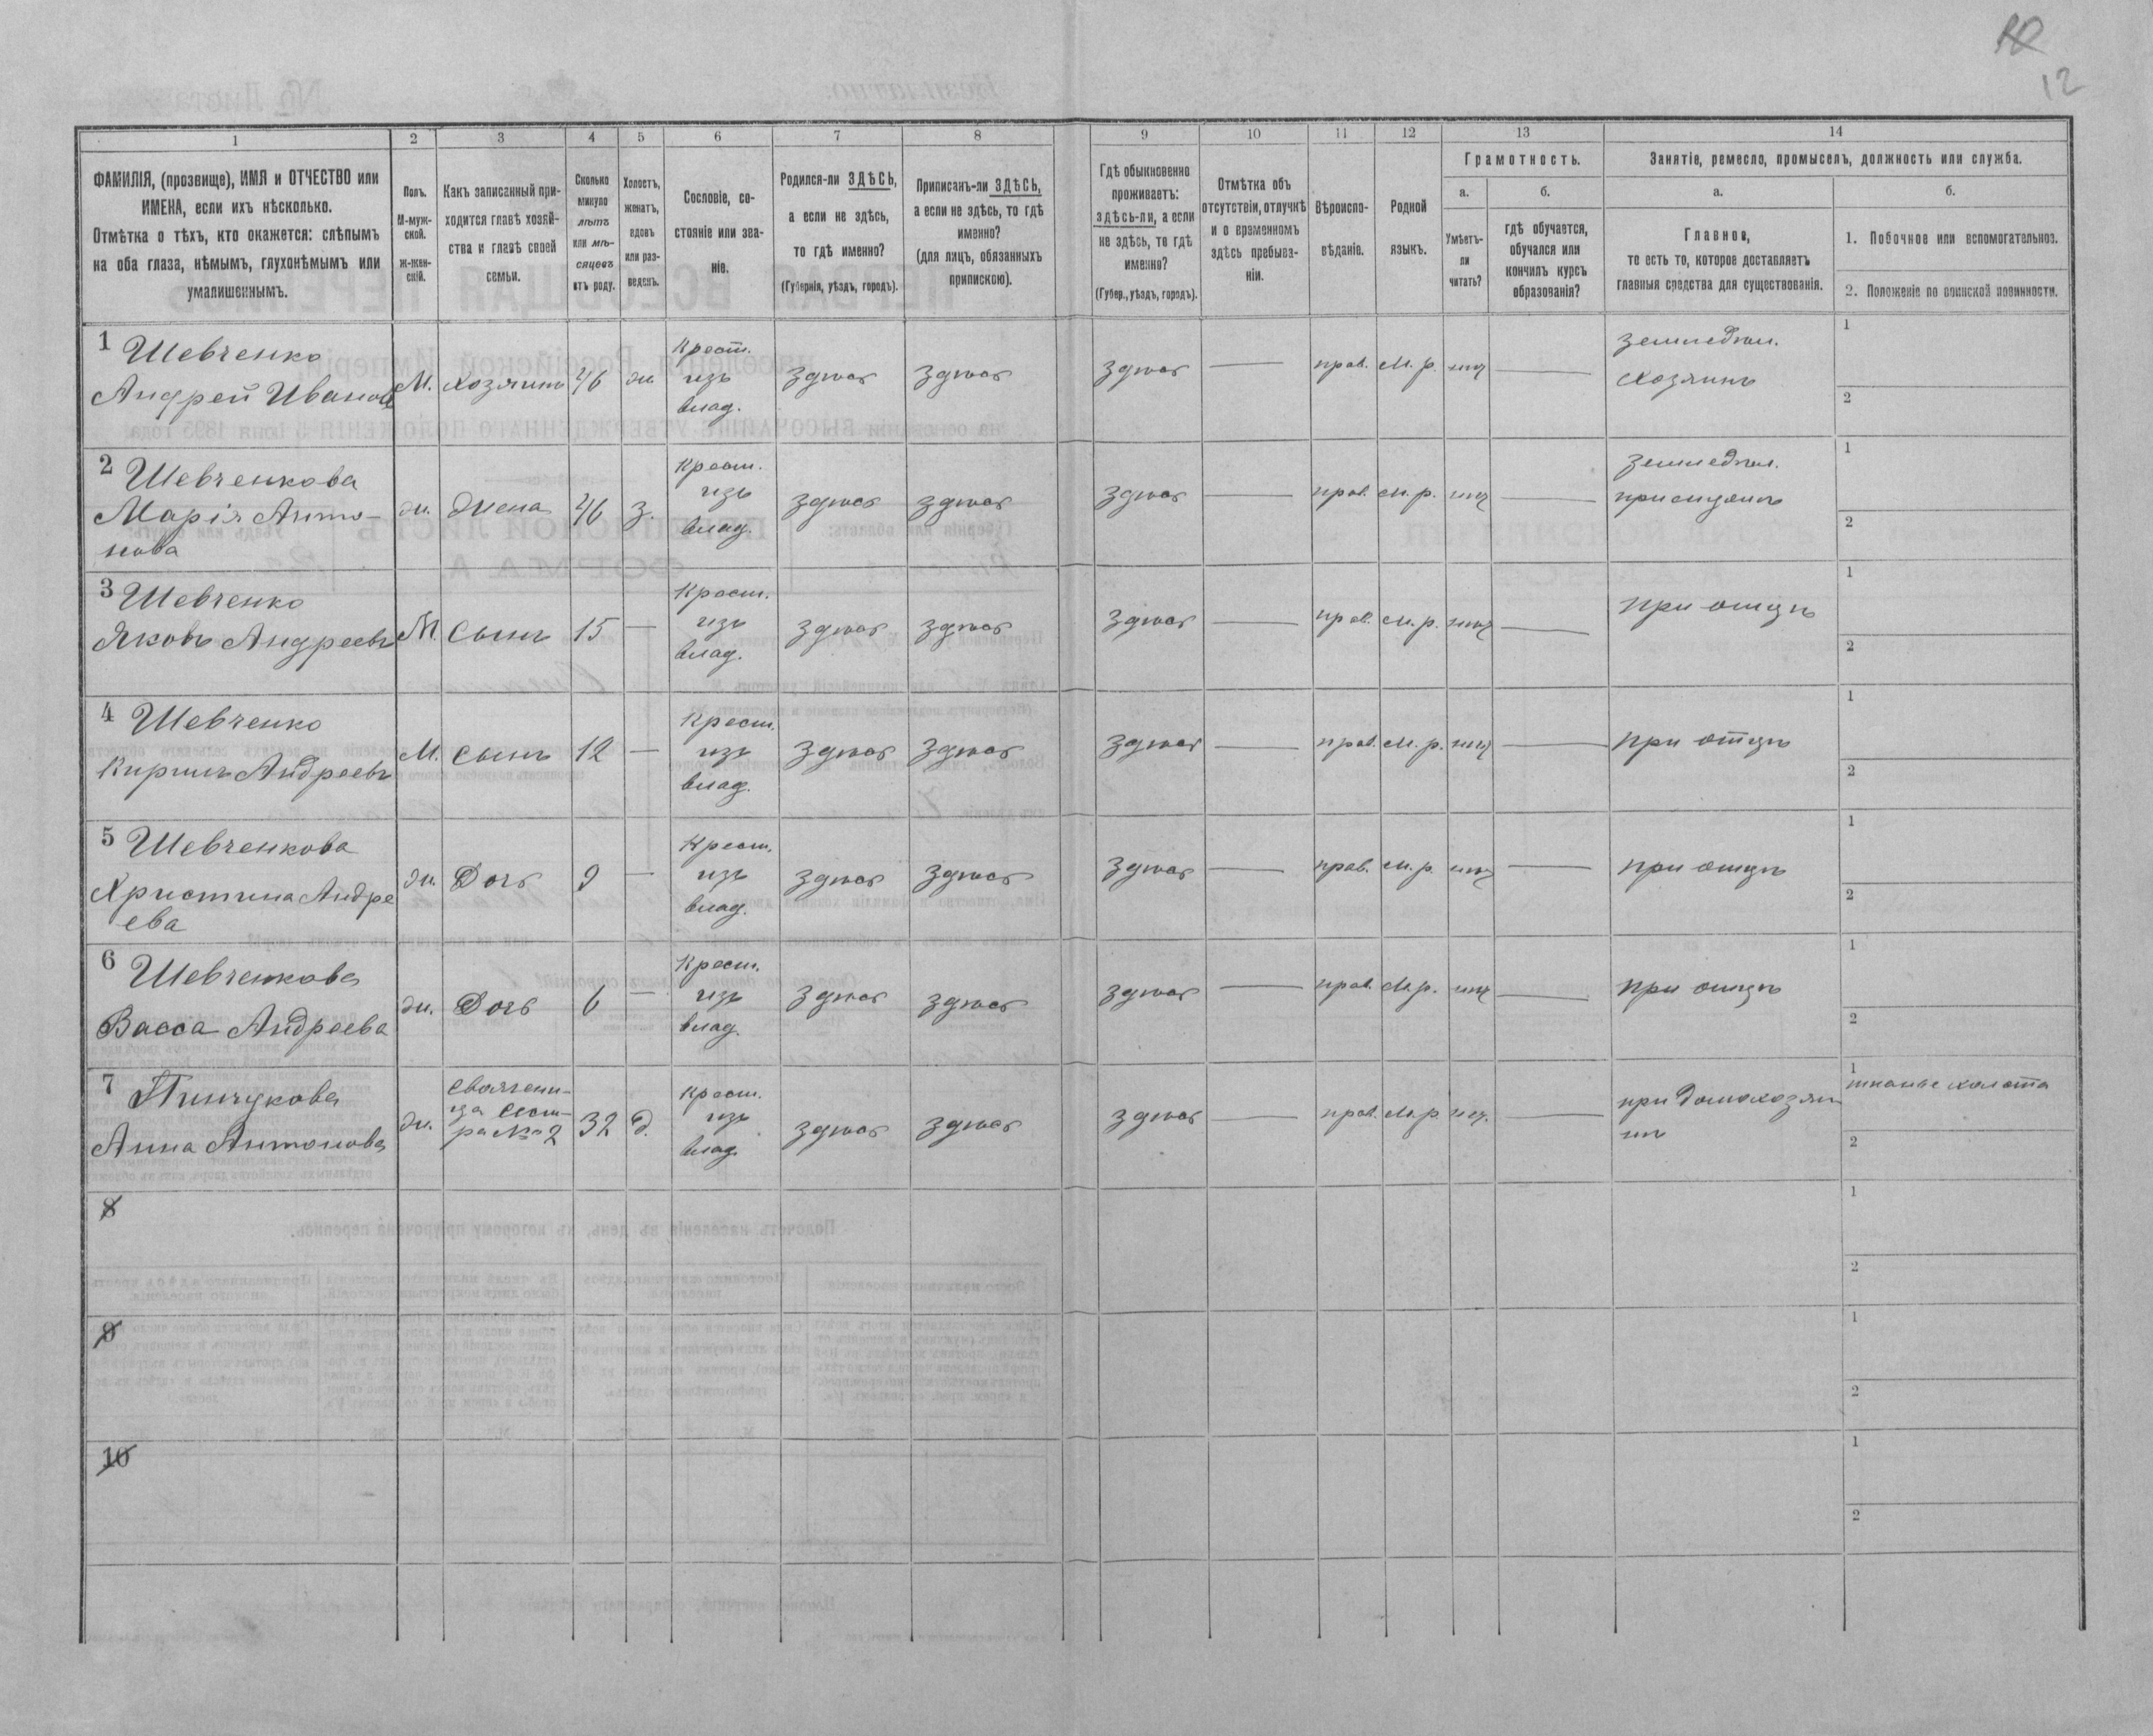 12
1 2 3 4 5 6 7 8 9 10 11 12 13 14
ФАМИЛІЯ, (прозвище), ИМЯ и ОТЧЕСТВО или
ИМЕНА, если ихъ нѣсколько.
Отмѣтка о тѣхъ, кто окажется: слѣпымъ
на оба глаза, нѣмымъ, глухонѣмымъ или
умалишеннымъ.
Полъ.
М-муж-
ской.
ж-жен-
скій.
Какъ записанный при-
ходится главѣ хозяй-
ства и главѣ своей
семьи.
Сколько
минуло
лѣтъ
или мѣ-
сяцевъ
отъ роду.
Холостъ,
женатъ,
вдовъ
или раз-
веденъ.
Сословіе, со-
стояніе или зва-
ніе.
Родился-ли ЗДѢСЬ,
а если не здѣсь,
то гдѣ именно?
(Губернія, уѣздъ, городъ).
Приписанъ-ли ЗДѢСЬ,
а если не здѣсь, то гдѣ
именно?
(для лицъ, обязанныхъ
припискою).
Гдѣ обыкновенно
проживаетъ:
здѣсь-ли, а если
не здѣсь, то гдѣ
именно?
(Губер., уѣздъ, городъ).
Отмѣтка объ
отсутствіи, отлучкѣ
и о временномъ
здѣсь пребыва-
ніи.
Вѣроиспо-
вѣданіе.
Родной
языкъ.
Грамотность.
а.
Умѣетъ-
ли
читать?
б.
гдѣ обучается,
обучался или
кончилъ курсъ
образованія?
Занятіе, ремесло, промыселъ, должность или служба.
а.
Главное,
то есть то, которое доставляетъ
главныя средства для существованія.
б.
1. Побочное или вспомогательное.
2. Положеніе по воинской повинности.
1 Шевченко
Андрей Ивановъ
М. Хозяинъ 46 ж.
Крест.
изъ
влад.
здѣсь здѣсь здѣсь — прав. м.р. нѣтъ —
земледѣл.
хозяинъ
1
2
2 Шевченкова
Марія Анто-
нова
ж. жена 46 з.
Крест.
изъ
влад.
здѣсь здѣсь здѣсь — прав. м.р. нѣтъ —
земледѣл.
при мужѣ
1
2
3 Шевченко
Яковъ Андреевъ
М. сынъ 15 —
Крест.
изъ
влад.
здѣсь здѣсь здѣсь — прав. м.р. нѣтъ —
при отцѣ
1
2
4 Шевченко
Кирилъ Андреевъ
М. сынъ 12 —
Крест.
изъ
влад.
здѣсь здѣсь здѣсь — прав. м.р. нѣтъ —
при отцѣ
1
2
5 Шевченкова
Христина Андре
ева
ж. Дочь 9 —
Крест.
изъ
влад.
здѣсь здѣсь здѣсь — прав. м.р. нѣтъ —
при отцѣ
1
2
6 Шевченкова
Васса Андреева
ж. Дочь 6 —
Крест.
изъ
влад.
здѣсь здѣсь здѣсь — прав. м.р. нѣтъ —
при отцѣ
1
2
7 Пинчукова
Анна Антонова
ж.
своячени-
ца сест-
ра № 2
32 д.
Крест.
изъ
влад.
здѣсь здѣсь здѣсь — прав. м.р. нѣт. —
при домохозяи
нѣ
1 тканье холста
2
8
1
2
9
1
2
10
1
2